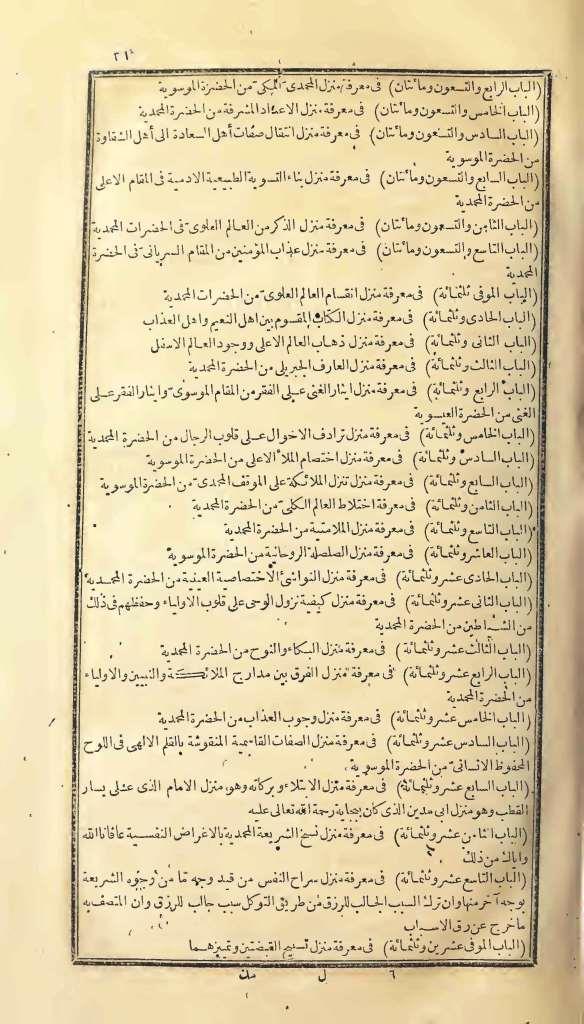 ٢١
(الباب الرابع والتسعون ومائتان) فى معرفة منزل المحمدى المكى من الحضرة الموسوية
(الباب الخامس والتسعون ومائتان) فى معرفة منزل الاعداد المشرفة من الحضرة المحمدية
(الباب السادس والتسعون ومائتان) فى معرفة منزل انتقال صفات أهل السعادة الى أهل الشقاوة
من الحضرة الموسوية
(الباب السابع والتسعون ومائتان) فى معرفة منزل بناء التسوية الطبيعية الادمية فى المقام الاعلى
من الحضرة المحمدية
(الباب الثامن والتسعون ومائتان) فى معرفة منزل الذكر من العالم العلوى فى الحضرات المحمدية
(الباب التاسع والتسعون ومائتان) فى معرفة منزل عذاب المؤمنين من المقام السريانى فى الحضرة
المحمدية
(الباب الموفى ثلثمائة) فى معرفة منزل انقسام العالم العلوى من الحضرات المحمدية
(الباب الحادى وثلثمائة) فى معرفة منزل الكتاب المقسوم بين اهل النعيم واهل العذاب
(الباب الثانى وثلثمائة) فى معرفة منزل ذهاب العالم الاعلى ووجود العالم الاسفل
(الباب الثالث وثلثمائة) فى معرفة منزل العارف الجبريلى من الحضرة المحمدية
(الباب الرابع وثلثمائة) فى معرفة منزل ايثار الغنى على الفقر من المقام الموسوى وايثار الفقر على
الغنى من الحضرة العيسوية
(الباب الخامس وثلثمائة) فى معرفة منزل ترادف الاحوال على قلوب الرجال من الحضرة المحمدية
(الباب السادس وثلثمائة) فى معرفة منزل اختصام الملأ الاعلى من الحضرة الموسوية
(الباب السابع وثلثمائة) فى معرفة منزل تنزل الملائكة على الموقف المحمدى من الحضرة الموسوية
(الباب الثامن وثلثمائة) فى معرفة اختلاط العالم الكلى من الحضرة المحمدية
(الباب التاسع وثلثمائة) فى معرفة منزل الملامتية من الحضرة المحمدية
(الباب العاشر وثلثمائة) فى معرفة منزل الصلصلة الروحانية من الحضرة الموسوية
(الباب الحادى عشر وثلثمائة) فى معرفة منزل النواشئ الاختصاصية الغيبية من الحضرة المحمدية
(الباب الثانى عشر وثلثمائة) فى معرفة منزل كيفية نزول الوحى على قلوب الاولياء وحفظهم فى ذلك
من الشياطين من الحضرة المحمدية
(الباب الثالث عشر وثلثمائة) فى معرفة منزل البكاء والنوح من الحضرة المحمدية
(الباب الرابع عشر وثلثمائة) فى معرفة منزل الفرق بين مدارج الملائكة والنبيين والاولياء
من الحضرة المحمدية
(الباب الخامس عشر وثلثمائة) فى معرفة منزل وجوب العذاب من الحضرة المحمدية
(الباب السادس عشر وثلثمائة) فى معرفة منزل الصفات القائمة المنقوشة بالقلم الالهى فى اللوح
المحفوظ الانسانى من الحضرة الموسوية
(الباب السابع عشر وثلثمائة) فى معرفة منزل الابتلاء وبركاته وهو منزل الامام الذى على يسار
القطب وهو منزل ابى مدين الذى كان ببجاية رحمة الله تعالى عليه
(الباب الثامن عشر وثلثمائة) فى معرفة منزل نسخ الشريعة المحمدية بالاغراض النفسية عافانا الله
واياك من ذلك
(الباب التاسع عشر وثلثمائة) فى معرفة منزل سراح النفس من قيد وجه تما من وجوه الشريعة
بوجه آخر منها وان ترك السبب الجالب للرزق من طريق التوكل سبب جالب للرزق وان المتصف به
ماخرج عن رق الاسباب
(الباب الموفى عشرين وثلثمائة) فى معرفة منزل تسبيح القبضتين وتميزهما
٦ ل مك